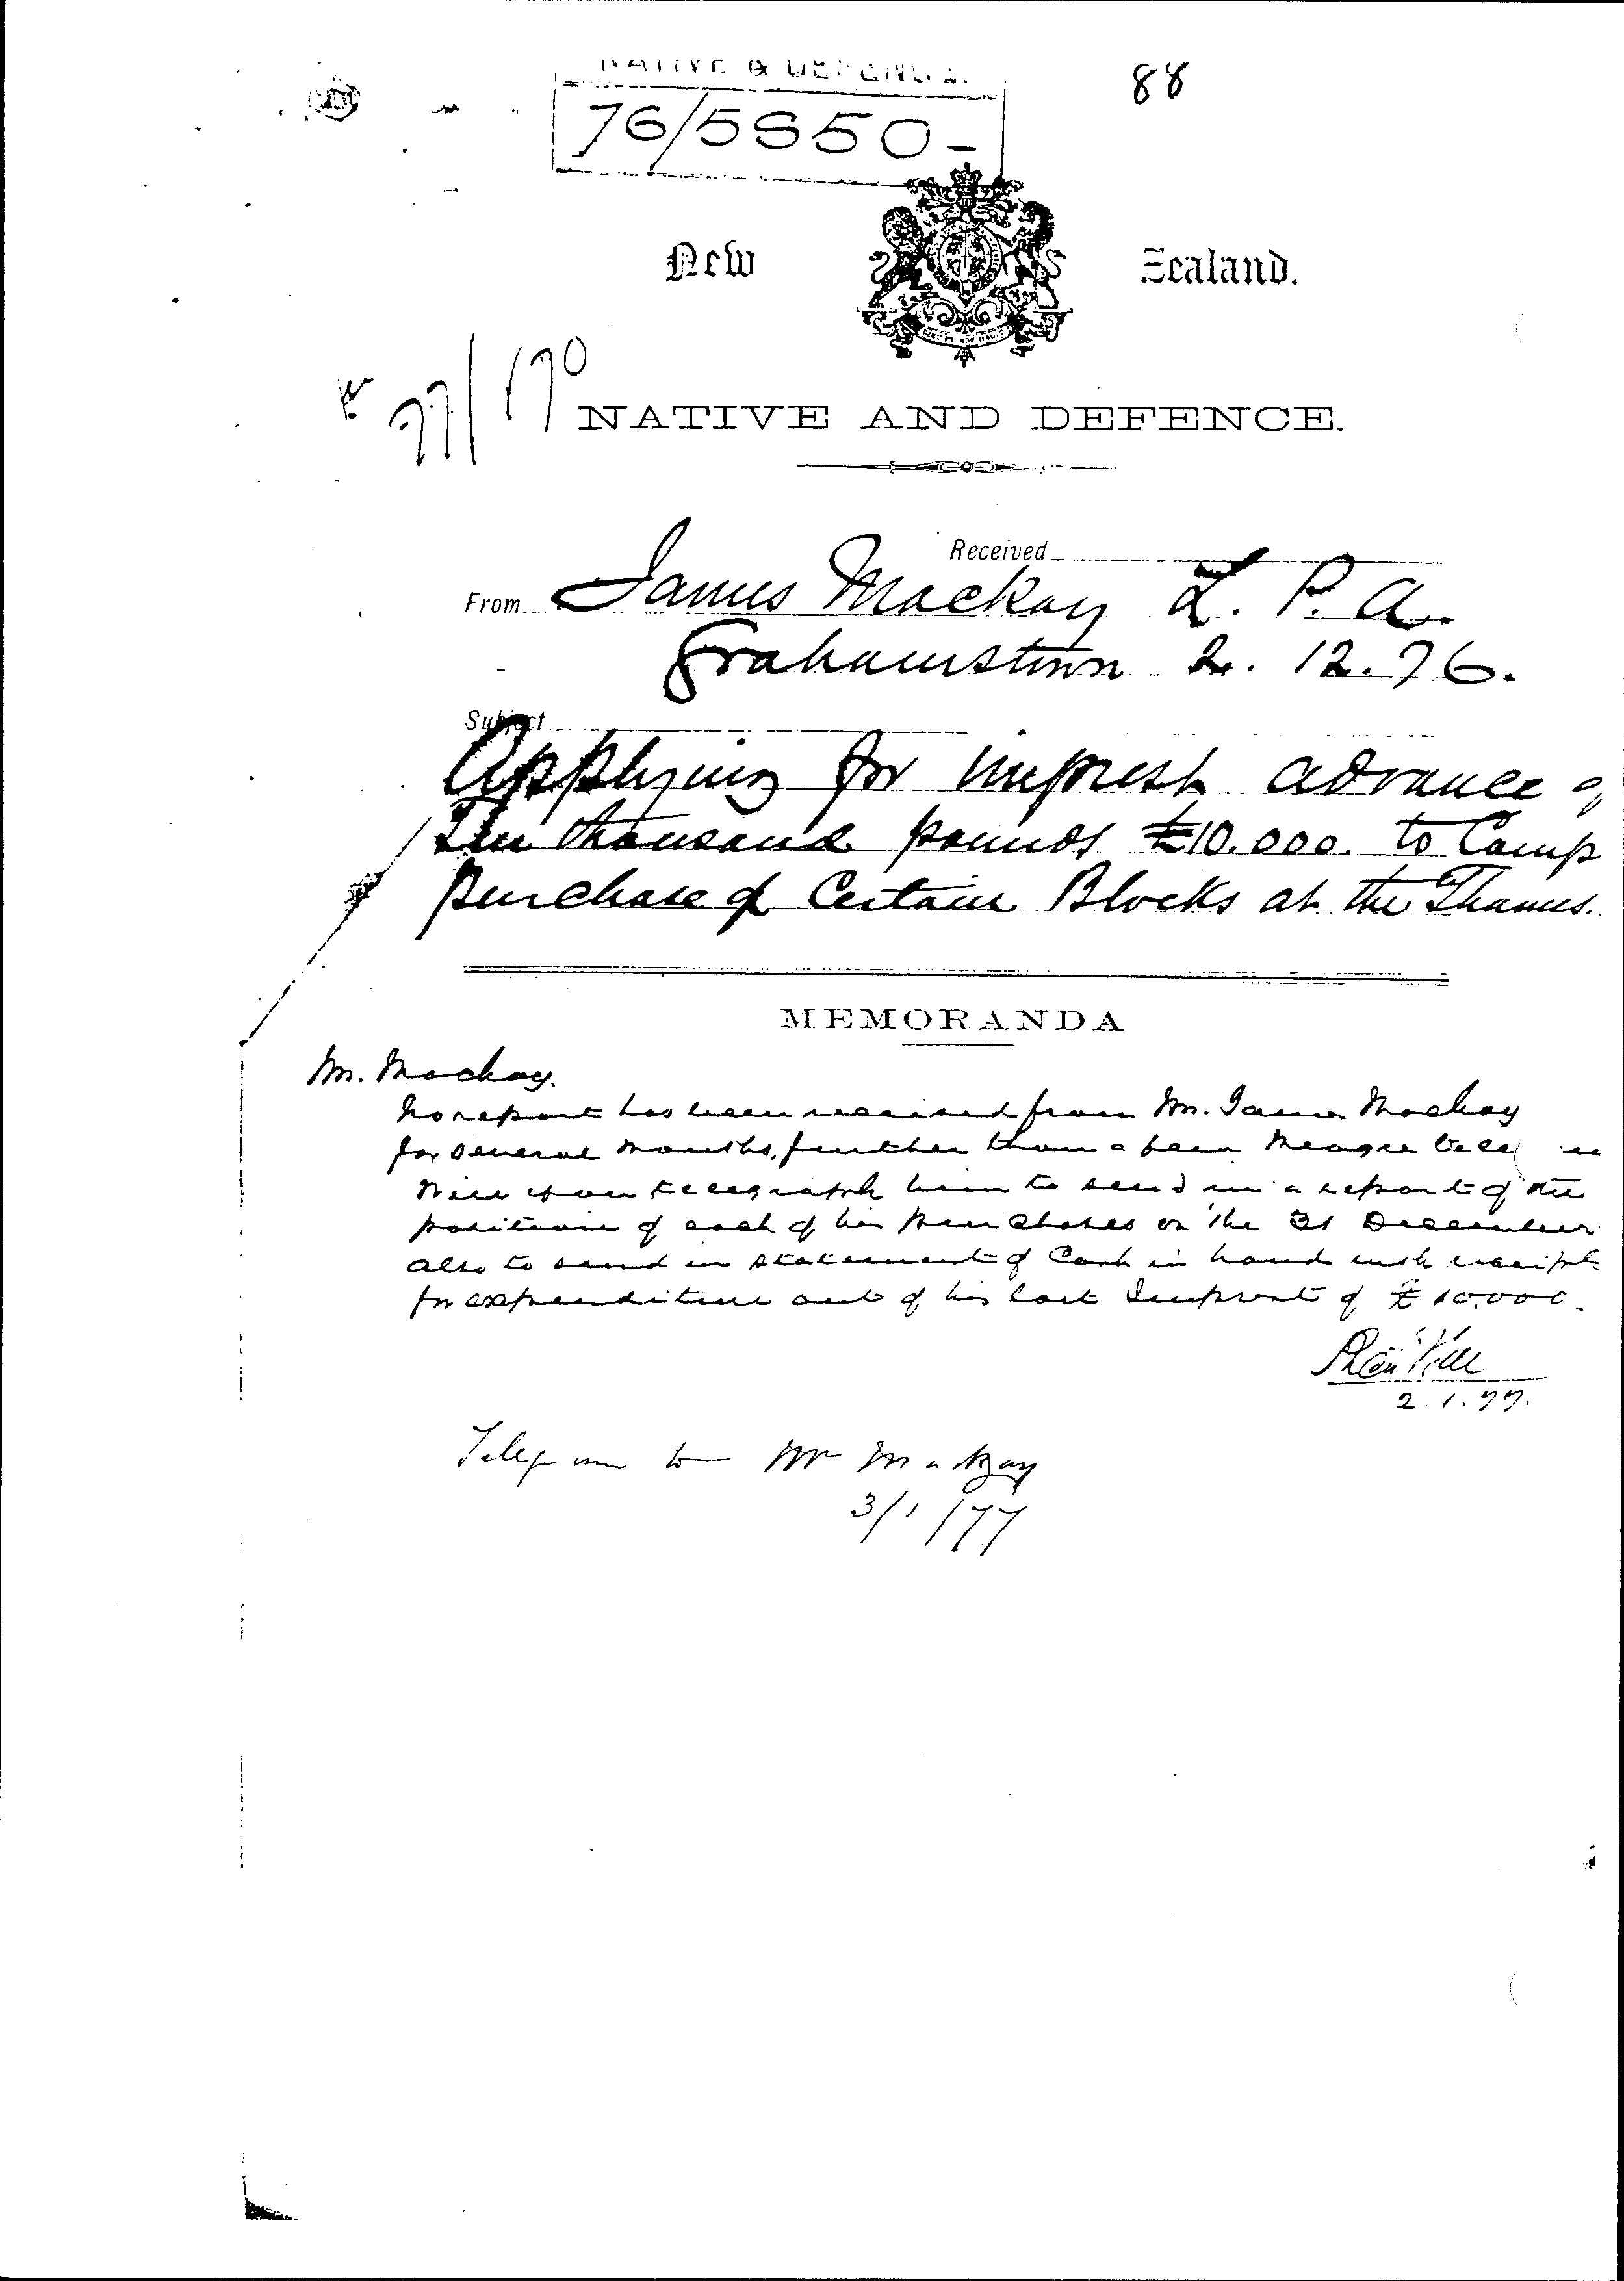 88
NATIVE & DEFENCE.
76/5850-
New Zealand.
77/170
NATIVE AND DEFENCE.
Received
From James Mackay L. P. A.
Grahamstown 2. 12. 76.
Subject
Applying for imprest advance of
Ten thousand pounds £10.000. to Comp
purchase of Certain Blocks at the Thames.
MEMORANDA
Mr. Mackay.
No report has been received from Mr. James Mackay
for several months, further than a few meagre
Will you telegraph him to send in a report of the
position of each of his purchases on the 31 December
also to send in statement of Cash in hand with receipts
for expenditure out of his last Imprest of £10.000.
2.1.77.
Telegram to Mr Mackay
3/1/77